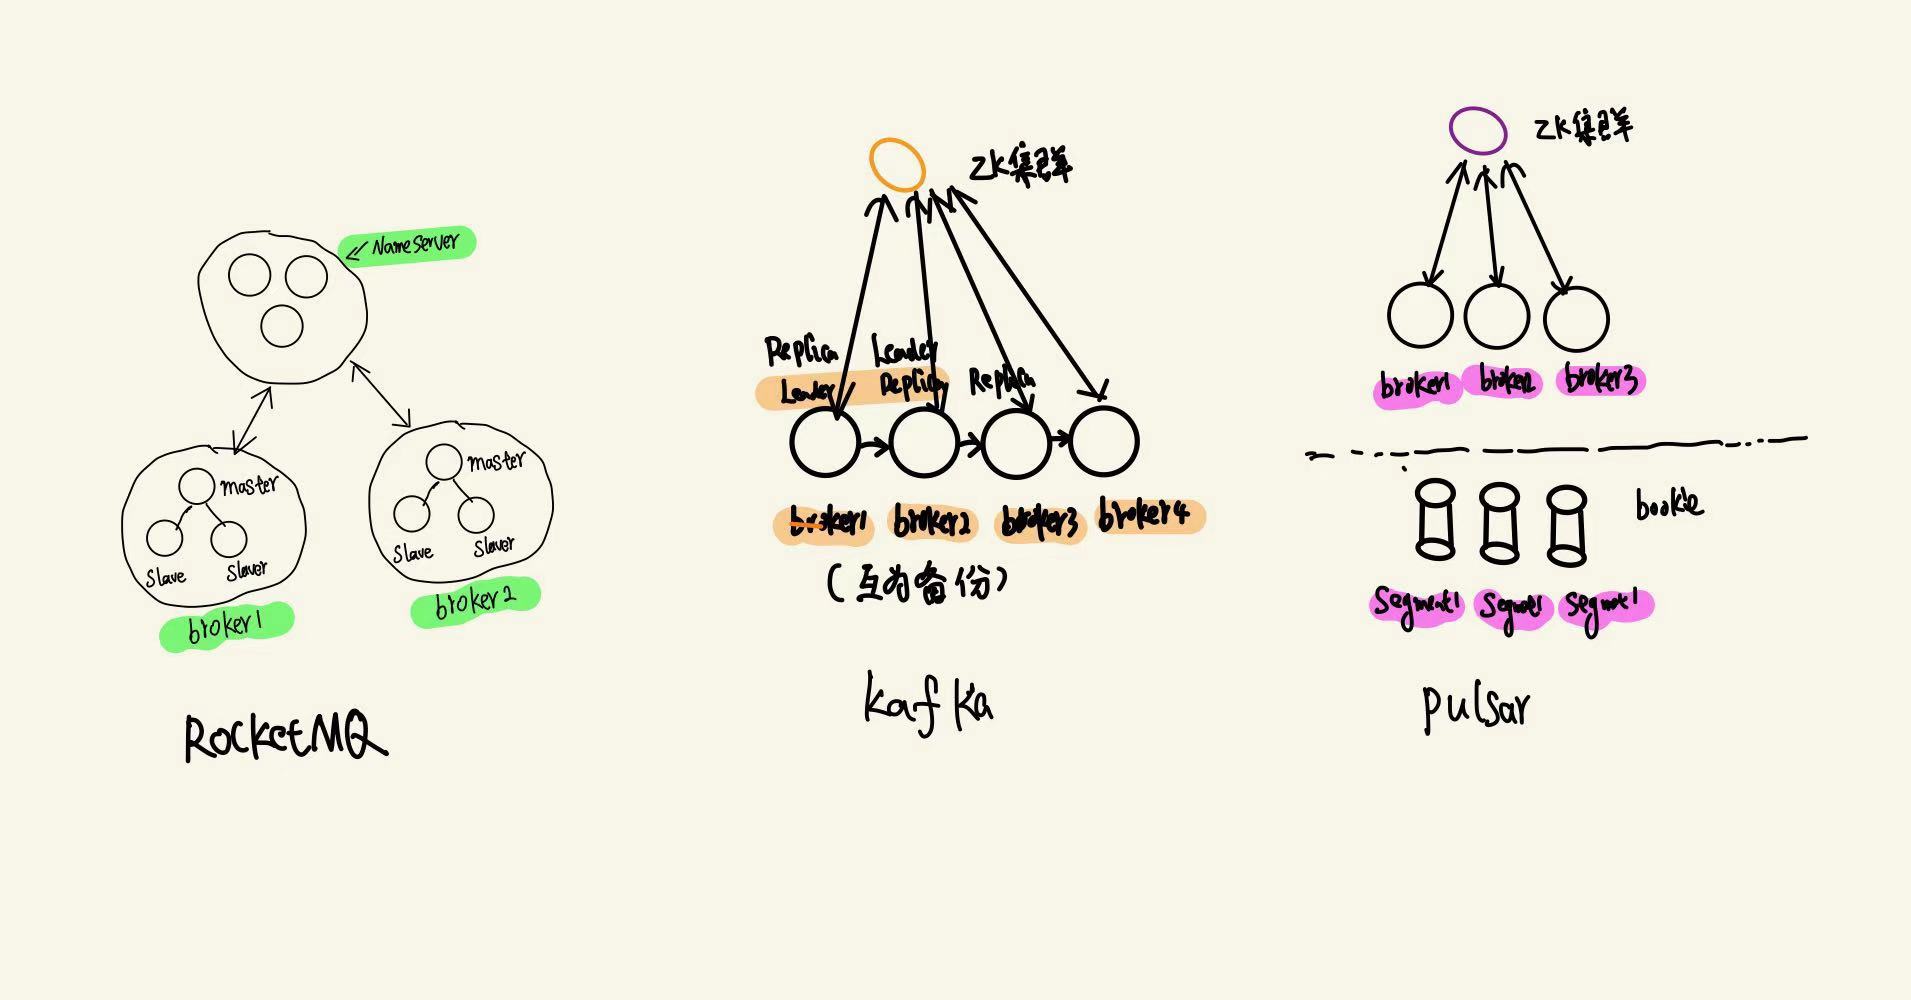 NameServer
master
Slave
Slaver
broker1
master
Slave
Slaver
broker2
RocketMQ
ZK集群
Replica
Leader
Leader
Replica
Replica
broker1
broker2
broker3
broker4
(互为备份)
kafka
ZK集群
broker1
broker2
broker3
bookie
Segment1
Segmet1
Segmet1
pulsar